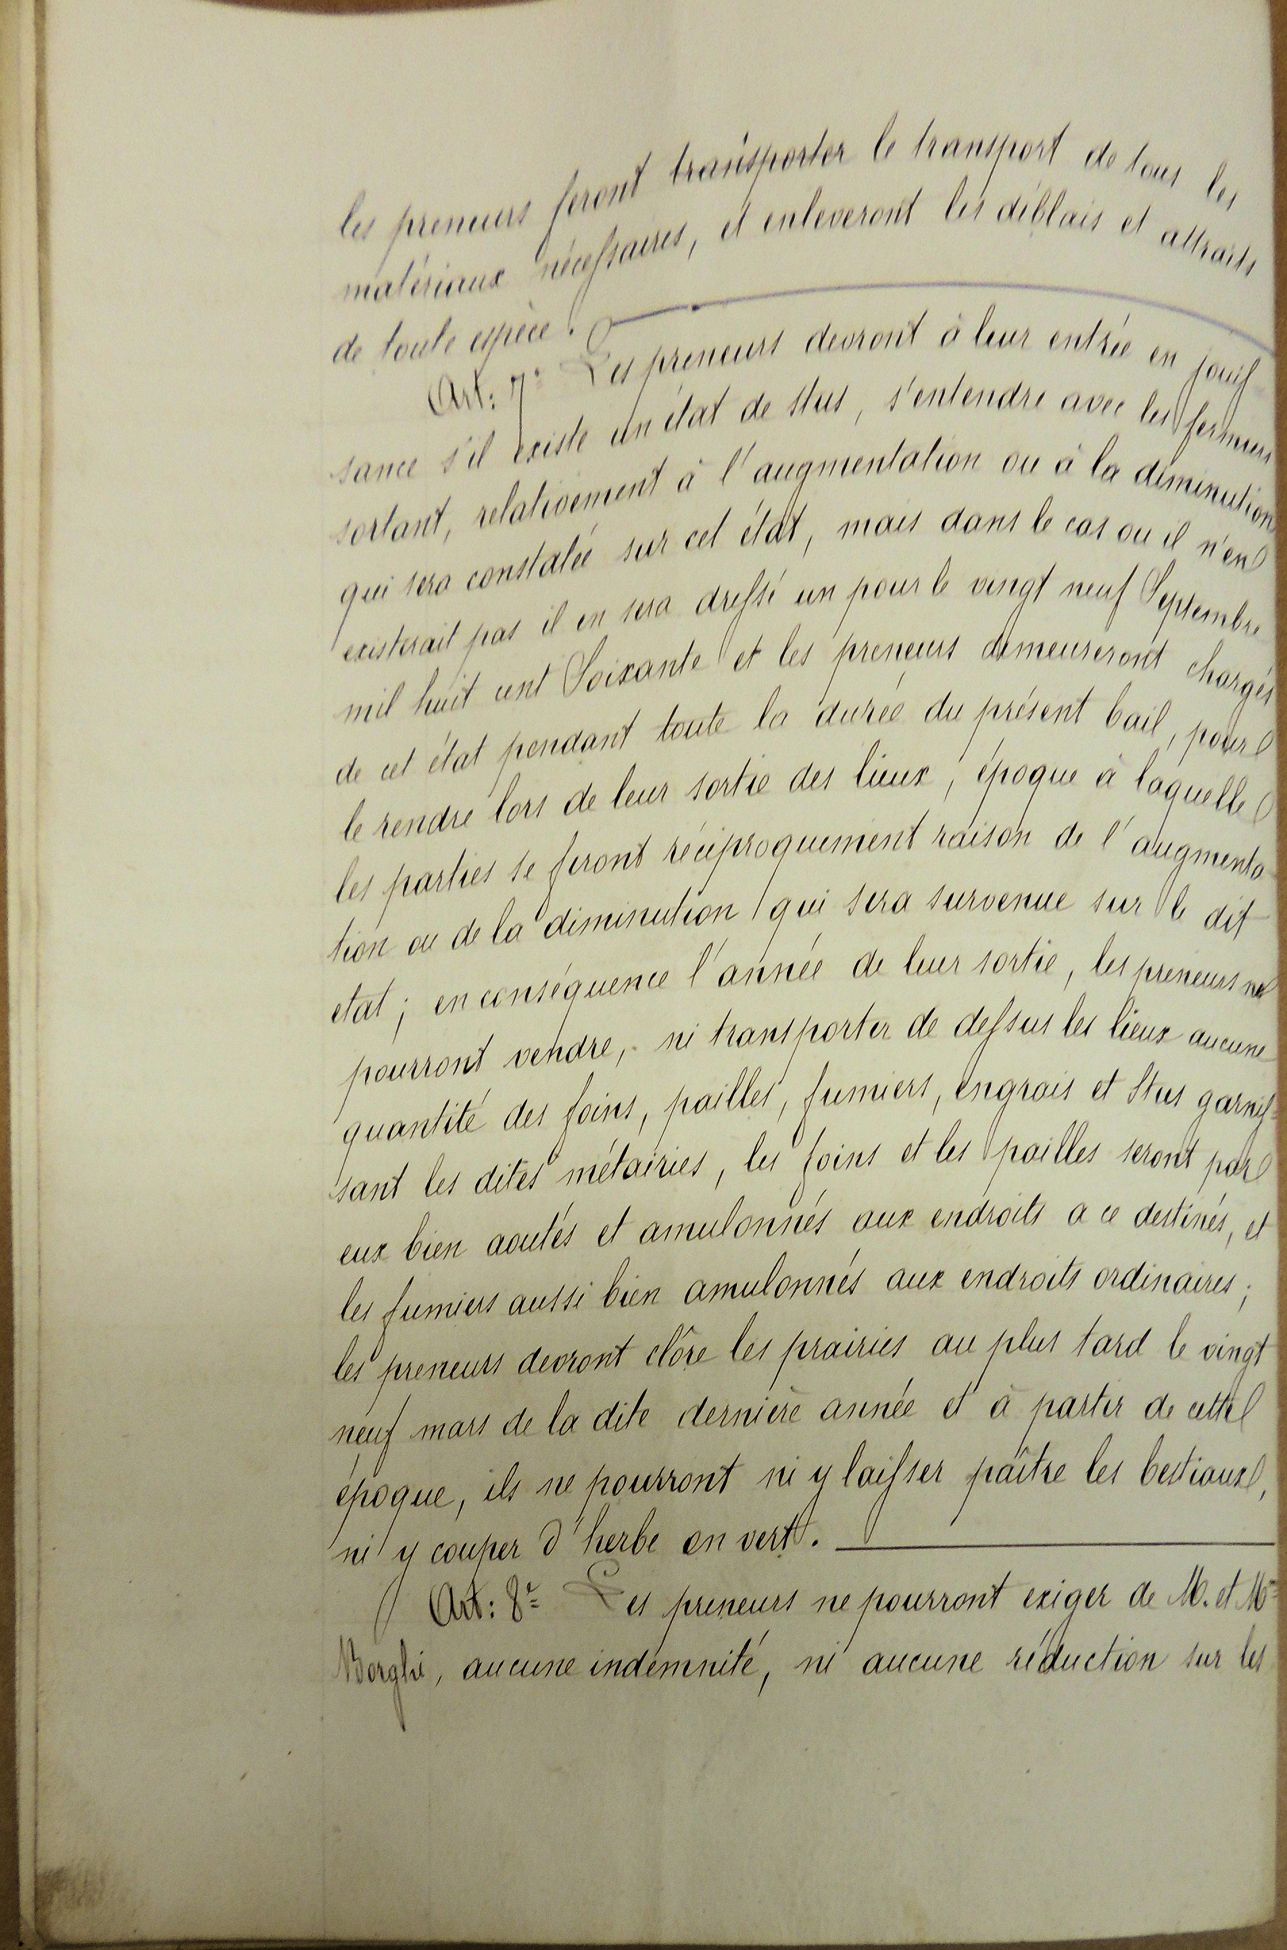 les preneurs feront transporter le transport de tous les
matériaux nécessaires, et enleveront les déblais et attraits
de toute espèce.
Art: 7e Les preneurs devront à leur entrée en jouis-
sance s'il existe un état de stus, s'entendre avec les fermiers
sortant, relativement à l'augmentation ou à la diminution
qui sera constatée sur cet état, mais dans le cas ou il n'en
existerait pas il en sera dressé un pour le vingt neuf Septembre
mil huit cent Soixante et les preneurs demeureront chargés
de cet état pendant toute la durée du présent bail, pour
le rendre lors de leur sortie des lieux, époque à laquelle
les parties se feront réciproquement raison de l'augmenta-
tion ou de la diminution qui sera survenue sur le dit
etat; en conséquence l'année de leur sortie, les preneurs ne
pourront vendre, ni transporter de dessus les lieux aucune
quantité des foins, pailles, fumiers, engrais et Stus garnis-
sant les dites métairies, les foins et les pailles seront par
eux bien aoutés et amulonnés aux endroits a ce destinés, et
les fumiers aussi bien amulonnés aux endroits ordinaires;
les preneurs devront clôre les prairies au plus tard le vingt
neuf mars de la dite dernière année et à partir de cette
époque, ils ne pourront ni y laisser paître les bestiaux,
ni y couper d'herbe en vert.
Art: 8e Les preneurs ne pourront exiger de M. et Me
Borghi, aucune indemnité, ni aucune réduction sur les